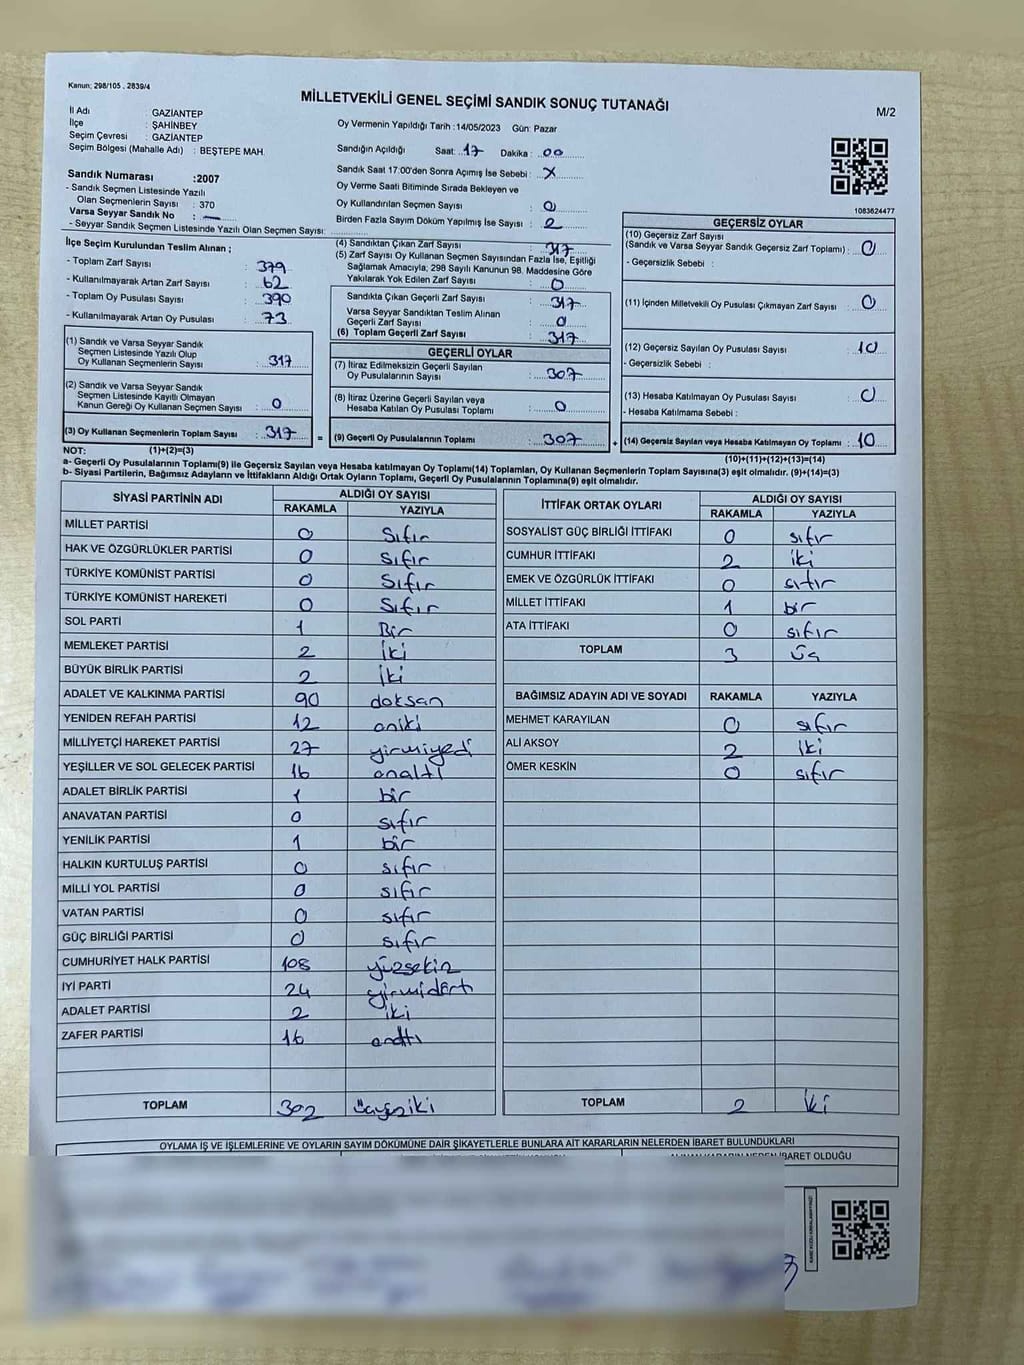 Kanun: 298/105 , 2839/4
MİLLETVEKİLİ GENEL SEÇİMİ SANDIK SONUÇ TUTANAĞI
M/2
İl Adı : GAZİANTEP
İlçe : ŞAHİNBEY
Seçim Çevresi : GAZİANTEP
Seçim Bölgesi (Mahalle Adı) : BEŞTEPE MAH.
Sandık Numarası : 2007
- Sandık Seçmen Listesinde Yazılı
Olan Seçmenlerin Sayısı : 370
Varsa Seyyar Sandık No : —
- Seyyar Sandık Seçmen Listesinde Yazılı Olan Seçmen Sayısı:
Oy Vermenin Yapıldığı Tarih :14/05/2023 Gün: Pazar
Sandığın Açıldığı Saat: 17 Dakika : 00
Sandık Saat 17.00'den Sonra Açımış İse Sebebi : X
Oy Verme Saati Bitiminde Sırada Bekleyen ve
Oy Kullandırılan Seçmen Sayısı : 0
Birden Fazla Sayım Döküm Yapılmış İse Sayısı : 2
1083624477
İlçe Seçim Kurulundan Teslim Alınan ;
- Toplam Zarf Sayısı : 379
- Kullanılmayarak Artan Zarf Sayısı : 62
- Toplam Oy Pusulası Sayısı : 390
- Kullanılmayarak Artan Oy Pusulası : 73
(1) Sandık ve Varsa Seyyar Sandık
Seçmen Listesinde Yazılı Olup
Oy Kullanan Seçmenlerin Sayısı : 317
(2) Sandık ve Varsa Seyyar Sandık
Seçmen Listesinde Kayıtlı Olmayan
Kanun Gereği Oy Kullanan Seçmen Sayısı : 0
(3) Oy Kullanan Seçmenlerin Toplam Sayısı : 317
(4) Sandıktan Çıkan Zarf Sayısı : 317
(5) Zarf Sayısı Oy Kullanan Seçmen Sayısından Fazla İse, Eşitliği
Sağlamak Amacıyla; 298 Sayılı Kanunun 98. Maddesine Göre
Yakılarak Yok Edilen Zarf Sayısı : 0
Sandıkta Çıkan Geçerli Zarf Sayısı : 317
Varsa Seyyar Sandıktan Teslim Alınan
Geçerli Zarf Sayısı : 0
(6) Toplam Geçerli Zarf Sayısı : 317
GEÇERLİ OYLAR
(7) İtiraz Edilmeksizin Geçerli Sayılan
Oy Pusulalarının Sayısı : 307
(8) İtiraz Üzerine Geçerli Sayılan veya
Hesaba Katılan Oy Pusulası Toplamı : 0
= (9) Geçerli Oy Pusulalarının Toplamı : 307
GEÇERSİZ OYLAR
(10) Geçersiz Zarf Sayısı
(Sandık ve Varsa Seyyar Sandık Geçersiz Zarf Toplamı) : 0
- Geçersizlik Sebebi :
(11) İçinden Milletvekili Oy Pusulası Çıkmayan Zarf Sayısı : 0
(12) Geçersiz Sayılan Oy Pusulası Sayısı : 10
- Geçersizlik Sebebi :
(13) Hesaba Katılmayan Oy Pusulası Sayısı : 0
- Hesaba Katılmama Sebebi :
+ (14) Geçersiz Sayılan veya Hesaba Katılmayan Oy Toplamı : 10
NOT: (1)+(2)=(3) (10)+(11)+(12)+(13)=(14)
a- Geçerli Oy Pusulalarının Toplamı(9) ile Geçersiz Sayılan veya Hesaba katılmayan Oy Toplamı(14) Toplamları, Oy Kullanan Seçmenlerin Toplam Sayısına(3) eşit olmalıdır. (9)+(14)=(3)
b- Siyasi Partilerin, Bağımsız Adayların ve İttifakların Aldığı Ortak Oyların Toplamı, Geçerli Oy Pusulalarının Toplamına(9) eşit olmalıdır.
SİYASİ PARTİNİN ADI ALDIĞI OY SAYISI
RAKAMLA YAZIYLA
MİLLET PARTİSİ 0 Sıfır
HAK VE ÖZGÜRLÜKLER PARTİSİ 0 Sıfır
TÜRKİYE KOMÜNİST PARTİSİ 0 Sıfır
TÜRKİYE KOMÜNİST HAREKETİ 0 Sıfır
SOL PARTİ 1 Bir
MEMLEKET PARTİSİ 2 İki
BÜYÜK BİRLİK PARTİSİ 2 İki
ADALET VE KALKINMA PARTİSİ 90 doksan
YENİDEN REFAH PARTİSİ 12 oniki
MİLLİYETÇİ HAREKET PARTİSİ 27 yirmiyedi
YEŞİLLER VE SOL GELECEK PARTİSİ 16 onaltı
ADALET BİRLİK PARTİSİ 1 bir
ANAVATAN PARTİSİ 0 sıfır
YENİLİK PARTİSİ 1 bir
HALKIN KURTULUŞ PARTİSİ 0 sıfır
MİLLİ YOL PARTİSİ 0 sıfır
VATAN PARTİSİ 0 sıfır
GÜÇ BİRLİĞİ PARTİSİ 0 sıfır
CUMHURİYET HALK PARTİSİ 108 yüzsekiz
İYİ PARTİ 24 yirmidört
ADALET PARTİSİ 2 iki
ZAFER PARTİSİ 16 onaltı
TOPLAM 302 üçyüziki
İTTİFAK ORTAK OYLARI ALDIĞI OY SAYISI
RAKAMLA YAZIYLA
SOSYALİST GÜÇ BİRLİĞİ İTTİFAKI 0 sıfır
CUMHUR İTTİFAKI 2 iki
EMEK VE ÖZGÜRLÜK İTTİFAKI 0 sıfır
MİLLET İTTİFAKI 1 bir
ATA İTTİFAKI 0 sıfır
TOPLAM 3 üç
BAĞIMSIZ ADAYIN ADI VE SOYADI RAKAMLA YAZIYLA
MEHMET KARAYILAN 0 sıfır
ALİ AKSOY 2 İki
ÖMER KESKİN 0 sıfır
TOPLAM 2 İki
OYLAMA İŞ VE İŞLEMLERİNE VE OYLARIN SAYIM DÖKÜMÜNE DAİR ŞİKAYETLERLE BUNLARA AİT KARARLARIN NELERDEN İBARET BULUNDUKLARI
İBARET OLDUĞU